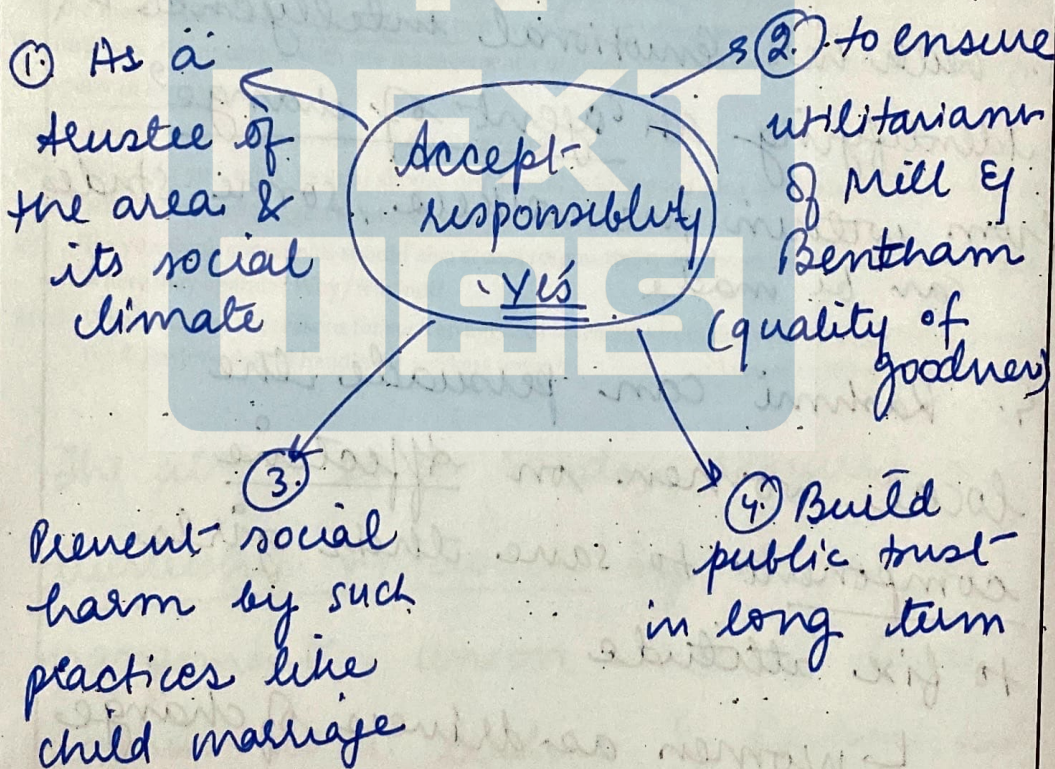 ① As a
trustee of
the area &
its social
climate
Accept
responsiblity
Yes
②. to ensure
utilitarianm
of Mill &
Bentham
(quality of
goodness)
③.
Prevent social
harm by such
practices like
child marriage
④. Build
public trust
in long term
NEXT
IAS